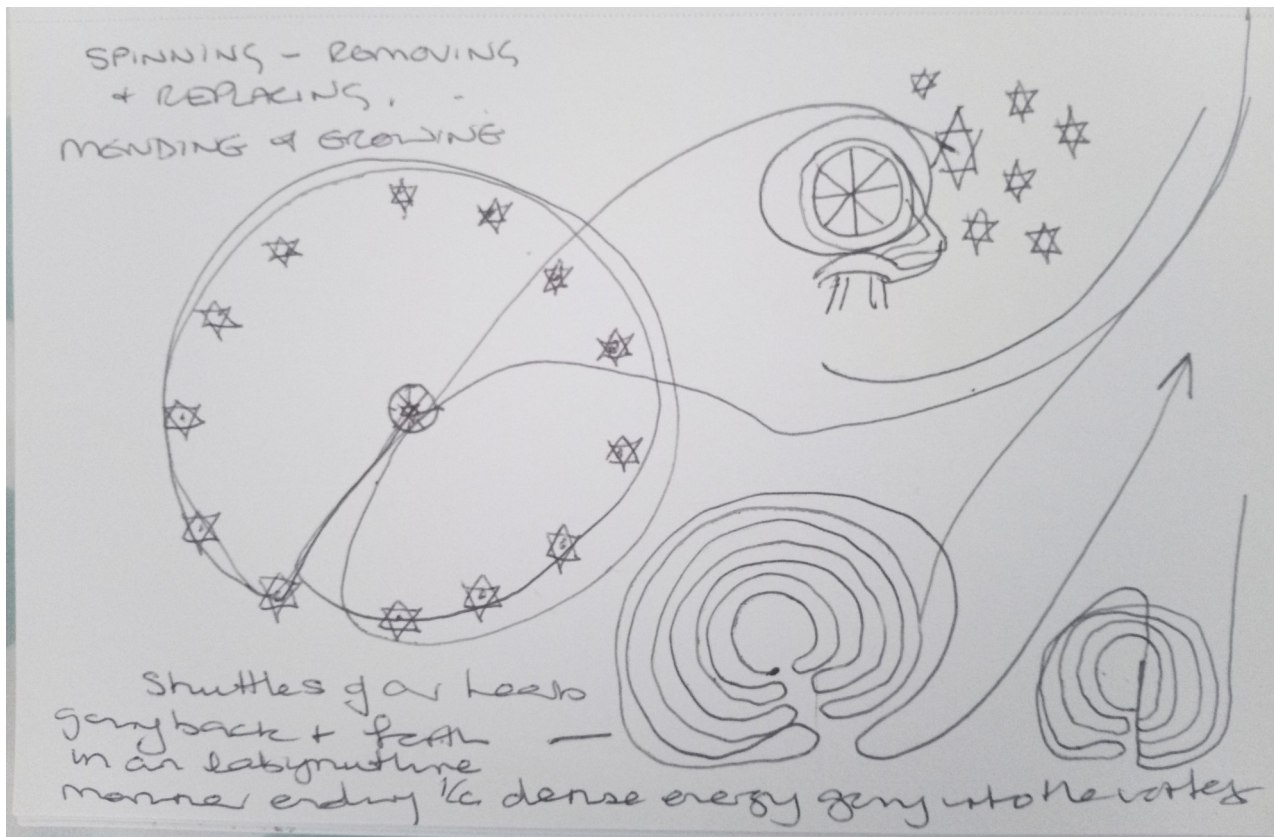 SPINNING - REMOVING
& REPLACING.
MENDING & GROWING
Shuttles of our looms
going back + forth —
in an labyrinthine
manner ending dense energy going into the vortex